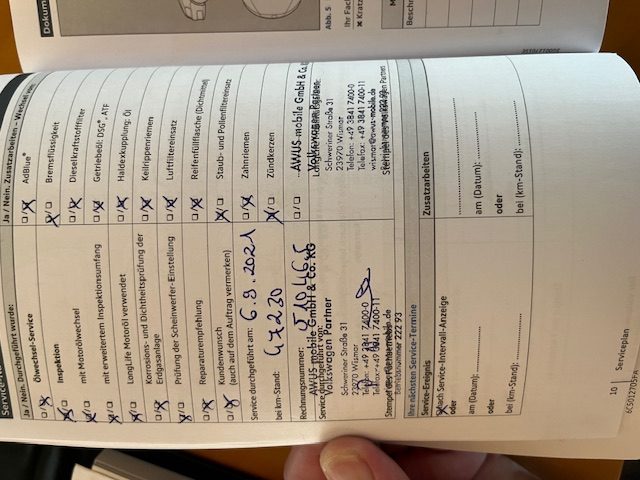 Dokum
Abb. 5
Ihr Fach
✖ Kratz
Beschr
Service-
Ja / Nein. Durchgeführt wurde:
Ölwechsel-Service
Inspektion
mit Motorölwechsel
mit erweitertem Inspektionsumfang
LongLife Motoröl verwendet
Korrosions- und Dichtheitsprüfung der
Erdgasanlage
Prüfung der Scheinwerfer-Einstellung
Reparaturempfehlung
Kundenwunsch
(auch auf dem Auftrag vermerken)
Service durchgeführt am: 6.9.2021
bei km-Stand: 47230
Rechnungsnummer:
AWUS mobile GmbH & Co. KG
Volkswagen Partner
Schweriner Straße 31
23970 Wismar
Telefon: +49 3841 7400-0
Telefax: +49 3841 7400-11
222 93
Ja / Nein. Zusatzarbeiten - Wechsel von:
AdBlue®
Bremsflüssigkeit
Dieselkraftstofffilter
Getriebeöl: DSG®, ATF
Haldexkupplung: Öl
Keilrippenriemen
Luftfiltereinsatz
Reifenfüllflasche (Dichtmittel)
Staub- und Pollenfiltereinsatz
Zahnriemen
Zündkerzen
AWUS mobile GmbH & Co. KG
Volkswagen Partner
Schweriner Straße 31
23970 Wismar
Telefon: +49 3841 7400-0
Telefax: +49 3841 7400-11
wismar@awus-mobile.de
Ihre nächsten Service-Termine
Service-Ereignis
Nach Service-Intervall-Anzeige
oder
am (Datum):
oder
bei (km-Stand):
Zusatzarbeiten
am (Datum):
oder
bei (km-Stand):
10
Serviceplan